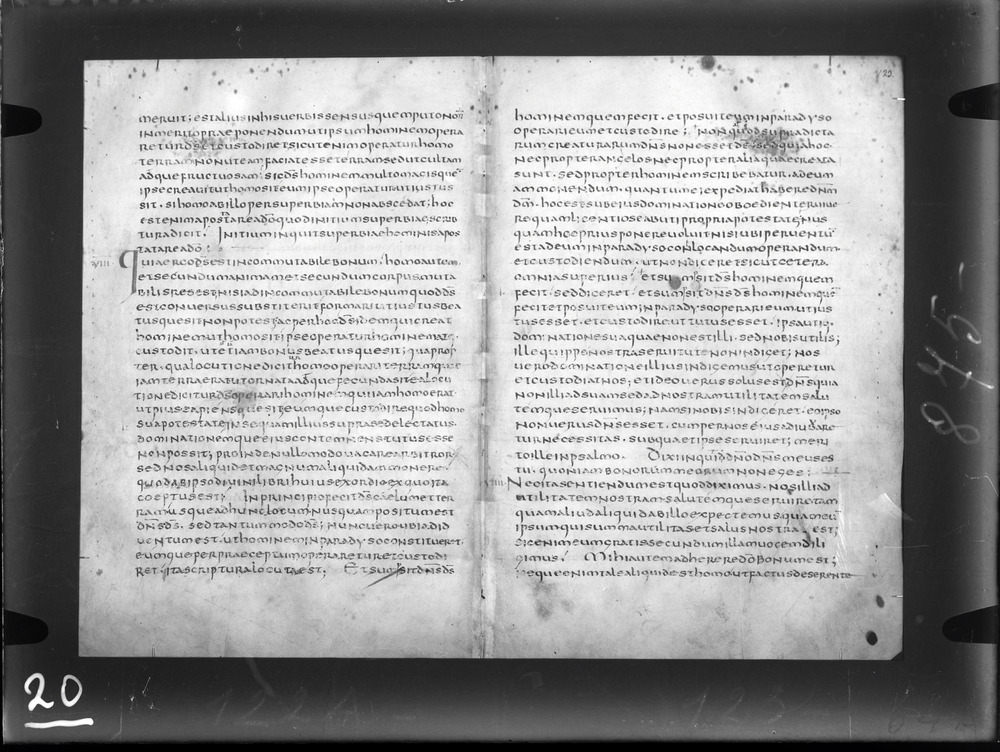 meruit; est alius in his verbis sensus quem puto non
inmerito praeponendum ut ipsum hominem opera
retur ds et custodiret sicut enim operatur homo
terram non ut eam faciat esse terram sed ut cultam
adque fructuosam; sic ds hominem multo magis que
ipse creavit ut homo sit eum ipse operatur ut iustus
sit. si homo ab illo per superbiam non abscedat; hoc
est enim apostatare a do quod initium superbiae scrib
tura dicit. Initium inquit superbiae hominis apos
tatare a do;
VIIII. Quia ergo ds est incommutabile bonum. homo autem
et secundum animam et secundum corpus muta
bilis res est. nisi ad incommutabile bonum quod ds
est conversus substiterit. formari ut iustus bea
tusque sit non potest. ac per hoc ds idem qui creat
hominem ut homo sit. ipse operatur hominem at
custodit. ut etiam bonus beatusque sit; quaprop
ter. qua locutione dicit homo operari terram que
iam terra erat ut ornata adque fecunda sit ea locu
tione dicitur ds operari hominem qui iam homo erat.
ut pius sapiensque sit eumque custodire quod homo
sua potestate in se quam illius supra se delectatus.
dominationemque eius contemnens tutus esse
non possit; proinde nullo modo vacare arbitror.
sed nos aliquid et magnum aliquid ammonere.
quod ab ipso divini libri huius exordio ex quo ita
coeptus est; In principio fecit ds caelum et ter
ram usque ad hunc locum nusquam positum est
dns ds. sed tantum modo ds; nunc vero ubi ad id
ventum est. ut hominem in paradyso constitueret.
eumque per praeceptum operaretur et custodi
ret. ita scriptura locuta est; Et sumsit dns ds
23.
hominem quem fecit. et posuit eum in paradyso
operari eum et custodire; non quod supradicta
rum creaturarum dns non esset ds. sed quia hoc
nec propter angelos nec propter alia quae creata
sunt. sed propter hominem scribebatur. ad eum
ammonendum. quantum ei expediat habere dnm
dm. hoc est sub eius dominatione oboedienter vive
re quam licentiose abuti propria potestate. nus
quam hoc prius ponere voluit nisi ubi perventum
est ad eum in paradyso conlocandum operandum
et custodiendum. ut non diceret sicut cetera
omnia superius; et sumsit ds hominem quem
fecit. sed diceret. et sumsit dns ds hominem que
fecit et posuit eum in paradyso operari eum ut ius
tus esset. et custodire ut tutus esset. ipsa utiq
dominatione sua quae non est illi. sed nobis utilis;
ille quippe nostra servitute non indiget; nos
vero dominatione illius indigemus ut operetur
et custodiat nos; et ideo verus solus est dns quia
non illi ad suam sed ad nostram utilitatem salu
temque servimus; nam si nobis indigeret. eo ipso
non verus dns esset. cum per nos eius adiuvare
tur necessitas. sub qua et ipse serviret; meri
to ille in psalmo. Dixi inquid dno dns meus es
tu. quoniam bonorum meorum non eges;
VIIII. Nec ita sentiendum est quod diximus. nos illi ad
utilitatem nostram salutemque servire tam
quam aliud aliquid ab illo expectemus quam eum
ipsum qui summa utilitas et salus nostra est;
sic enim eum gratis secundum illam vocem dili
gimus; Mihi autem adherere do bonum est;
Neque enim tale aliquid est homo ut factus deserente
20